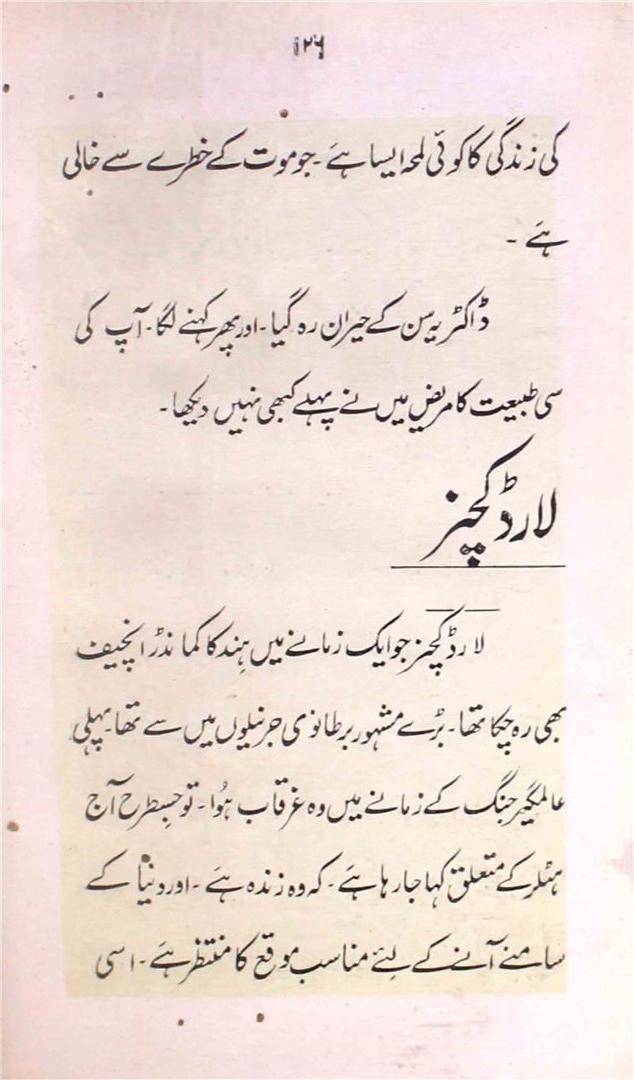 ۱۲۶
کی زندگی کا کوئی لمحہ ایسا ہے ۔ جو موت کے خطرے سے خالی
ہے ۔
ڈاکٹر یہ سن کے حیران رہ گیا ۔ اور پھر کہنے لگا ۔ آپ کی
سی طبیعت کا مریض میں نے پہلے کبھی نہیں دیکھا ۔
لارڈ کچنر
لارڈ کچنر جو ایک زمانے میں ہند کا کمانڈر انچیف
بھی رہ چکا تھا ۔ بڑے مشہور برطانوی جرنیلوں میں سے تھا ۔ پہلی
عالمگیر جنگ کے زمانے میں وہ غرقاب ہُوا ۔ تو جسطرح آج
ہٹلر کے متعلق کہا جا رہا ہے ۔ کہ وہ زندہ ہے ۔ اور دنیا کے
سامنے آنے کے لئے مناسب موقع کا منتظر ہے ۔ اسی